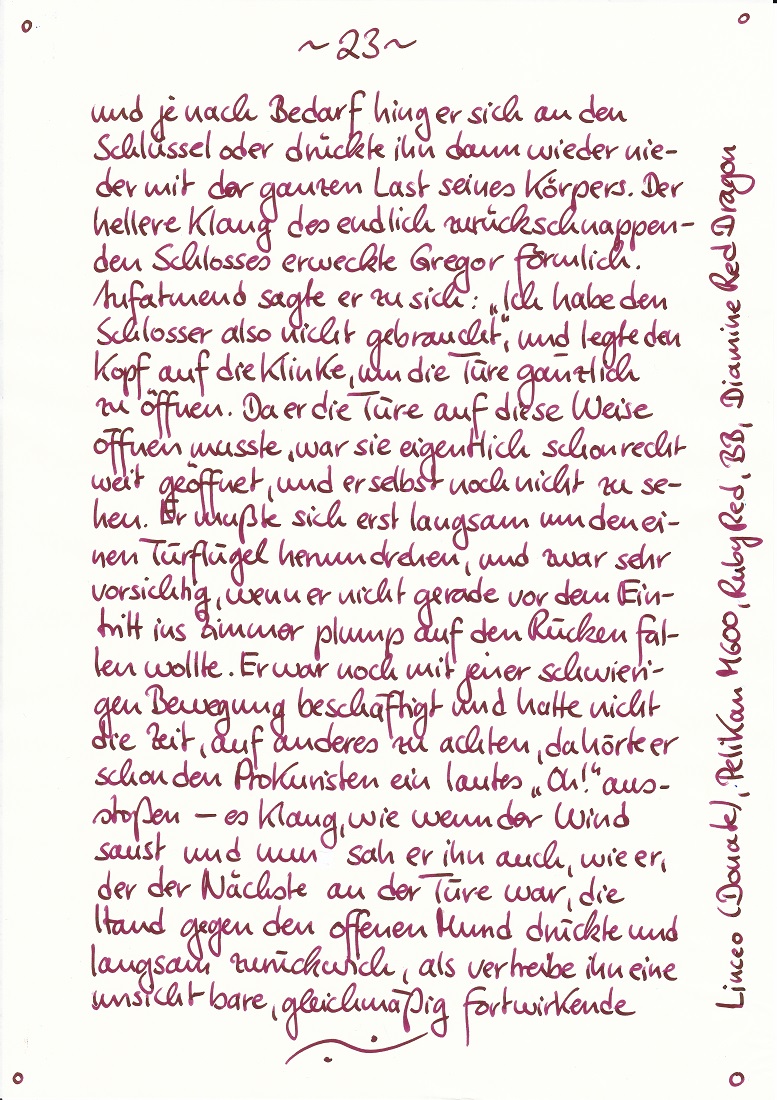 ~23~
und je nach Bedarf hing er sich an den
Schlüssel oder drückte ihn dann wieder nie-
der mit der ganzen Last seines Körpers. Der
hellere Klang des endlich zurückschnappen-
den Schlosses erweckte Gregor förmlich.
Aufatmend sagte er zu sich: „Ich habe den
Schlosser also nicht gebraucht“, und legte den
Kopf auf die Klinke, um die Türe gänzlich
zu öffnen. Da er die Türe auf diese Weise
öffnen musste, war sie eigentlich schon recht
weit geöffnet, und er selbst noch nicht zu se-
hen. Er mußte sich erst langsam um den ei-
nen Türflügel herumdrehen, und zwar sehr
vorsichtig, wenn er nicht gerade vor dem Ein-
tritt ins Zimmer plump auf den Rücken fal-
len wollte. Er war noch mit jener schwieri-
gen Bewegung beschäftigt und hatte nicht
die Zeit, auf anderes zu achten, da hörte er
schon den Prokuristen ein lautes „Oh!“ aus-
stoßen – es klang, wie wenn der Wind
saust und nun sah er ihn auch, wie er,
der der Nächste an der Türe war, die
Hand gegen den offenen Mund drückte und
langsam zurückwich, als vertreibe ihn eine
unsichtbare, gleichmäßig fortwirkende
Linceo (Donate), Pelikan M600, Ruby Red, BB, Diamine Red Dragon